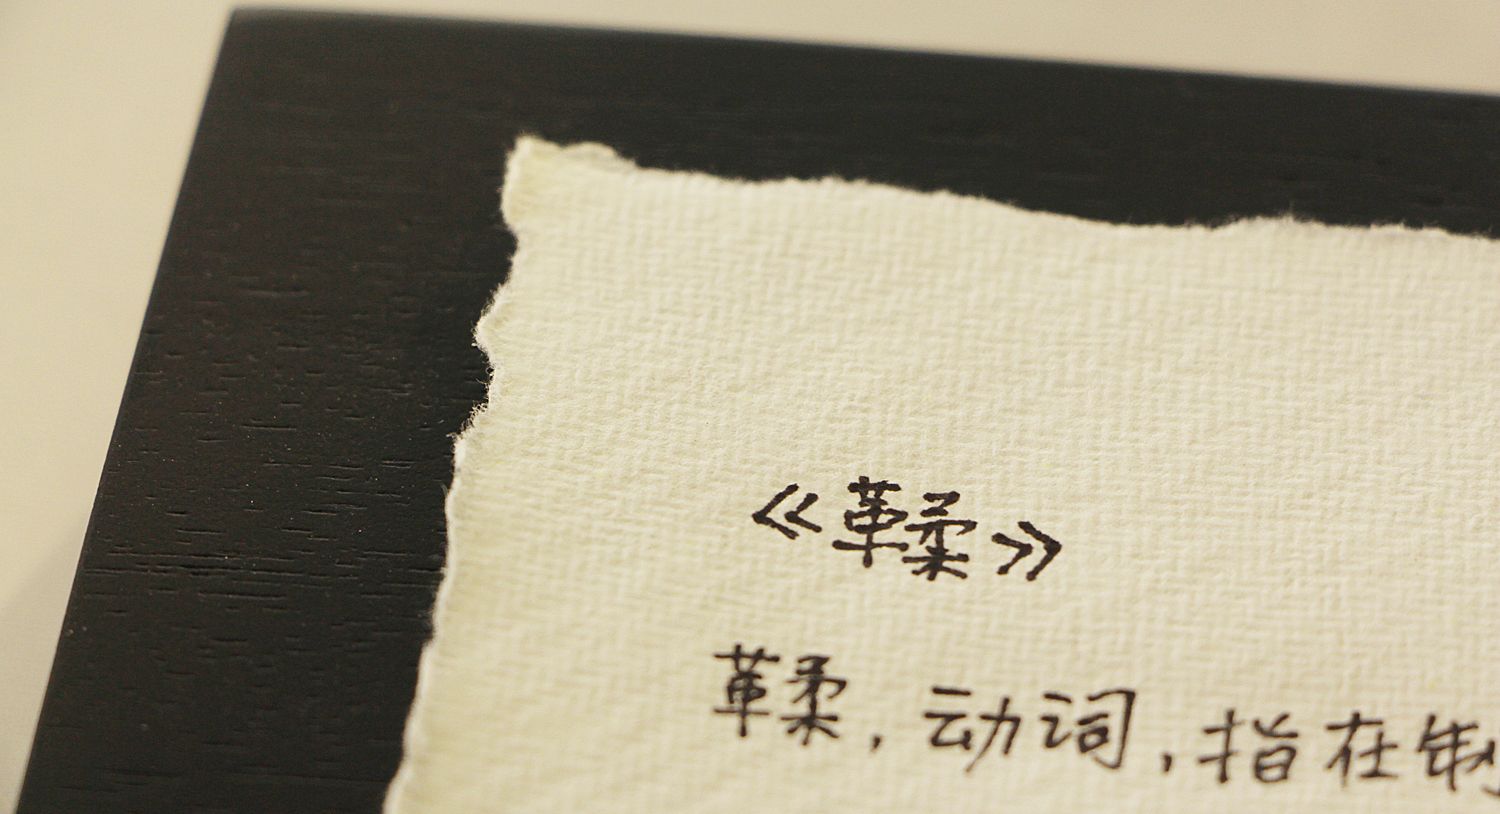 《鞣》
鞣，动词，指在制